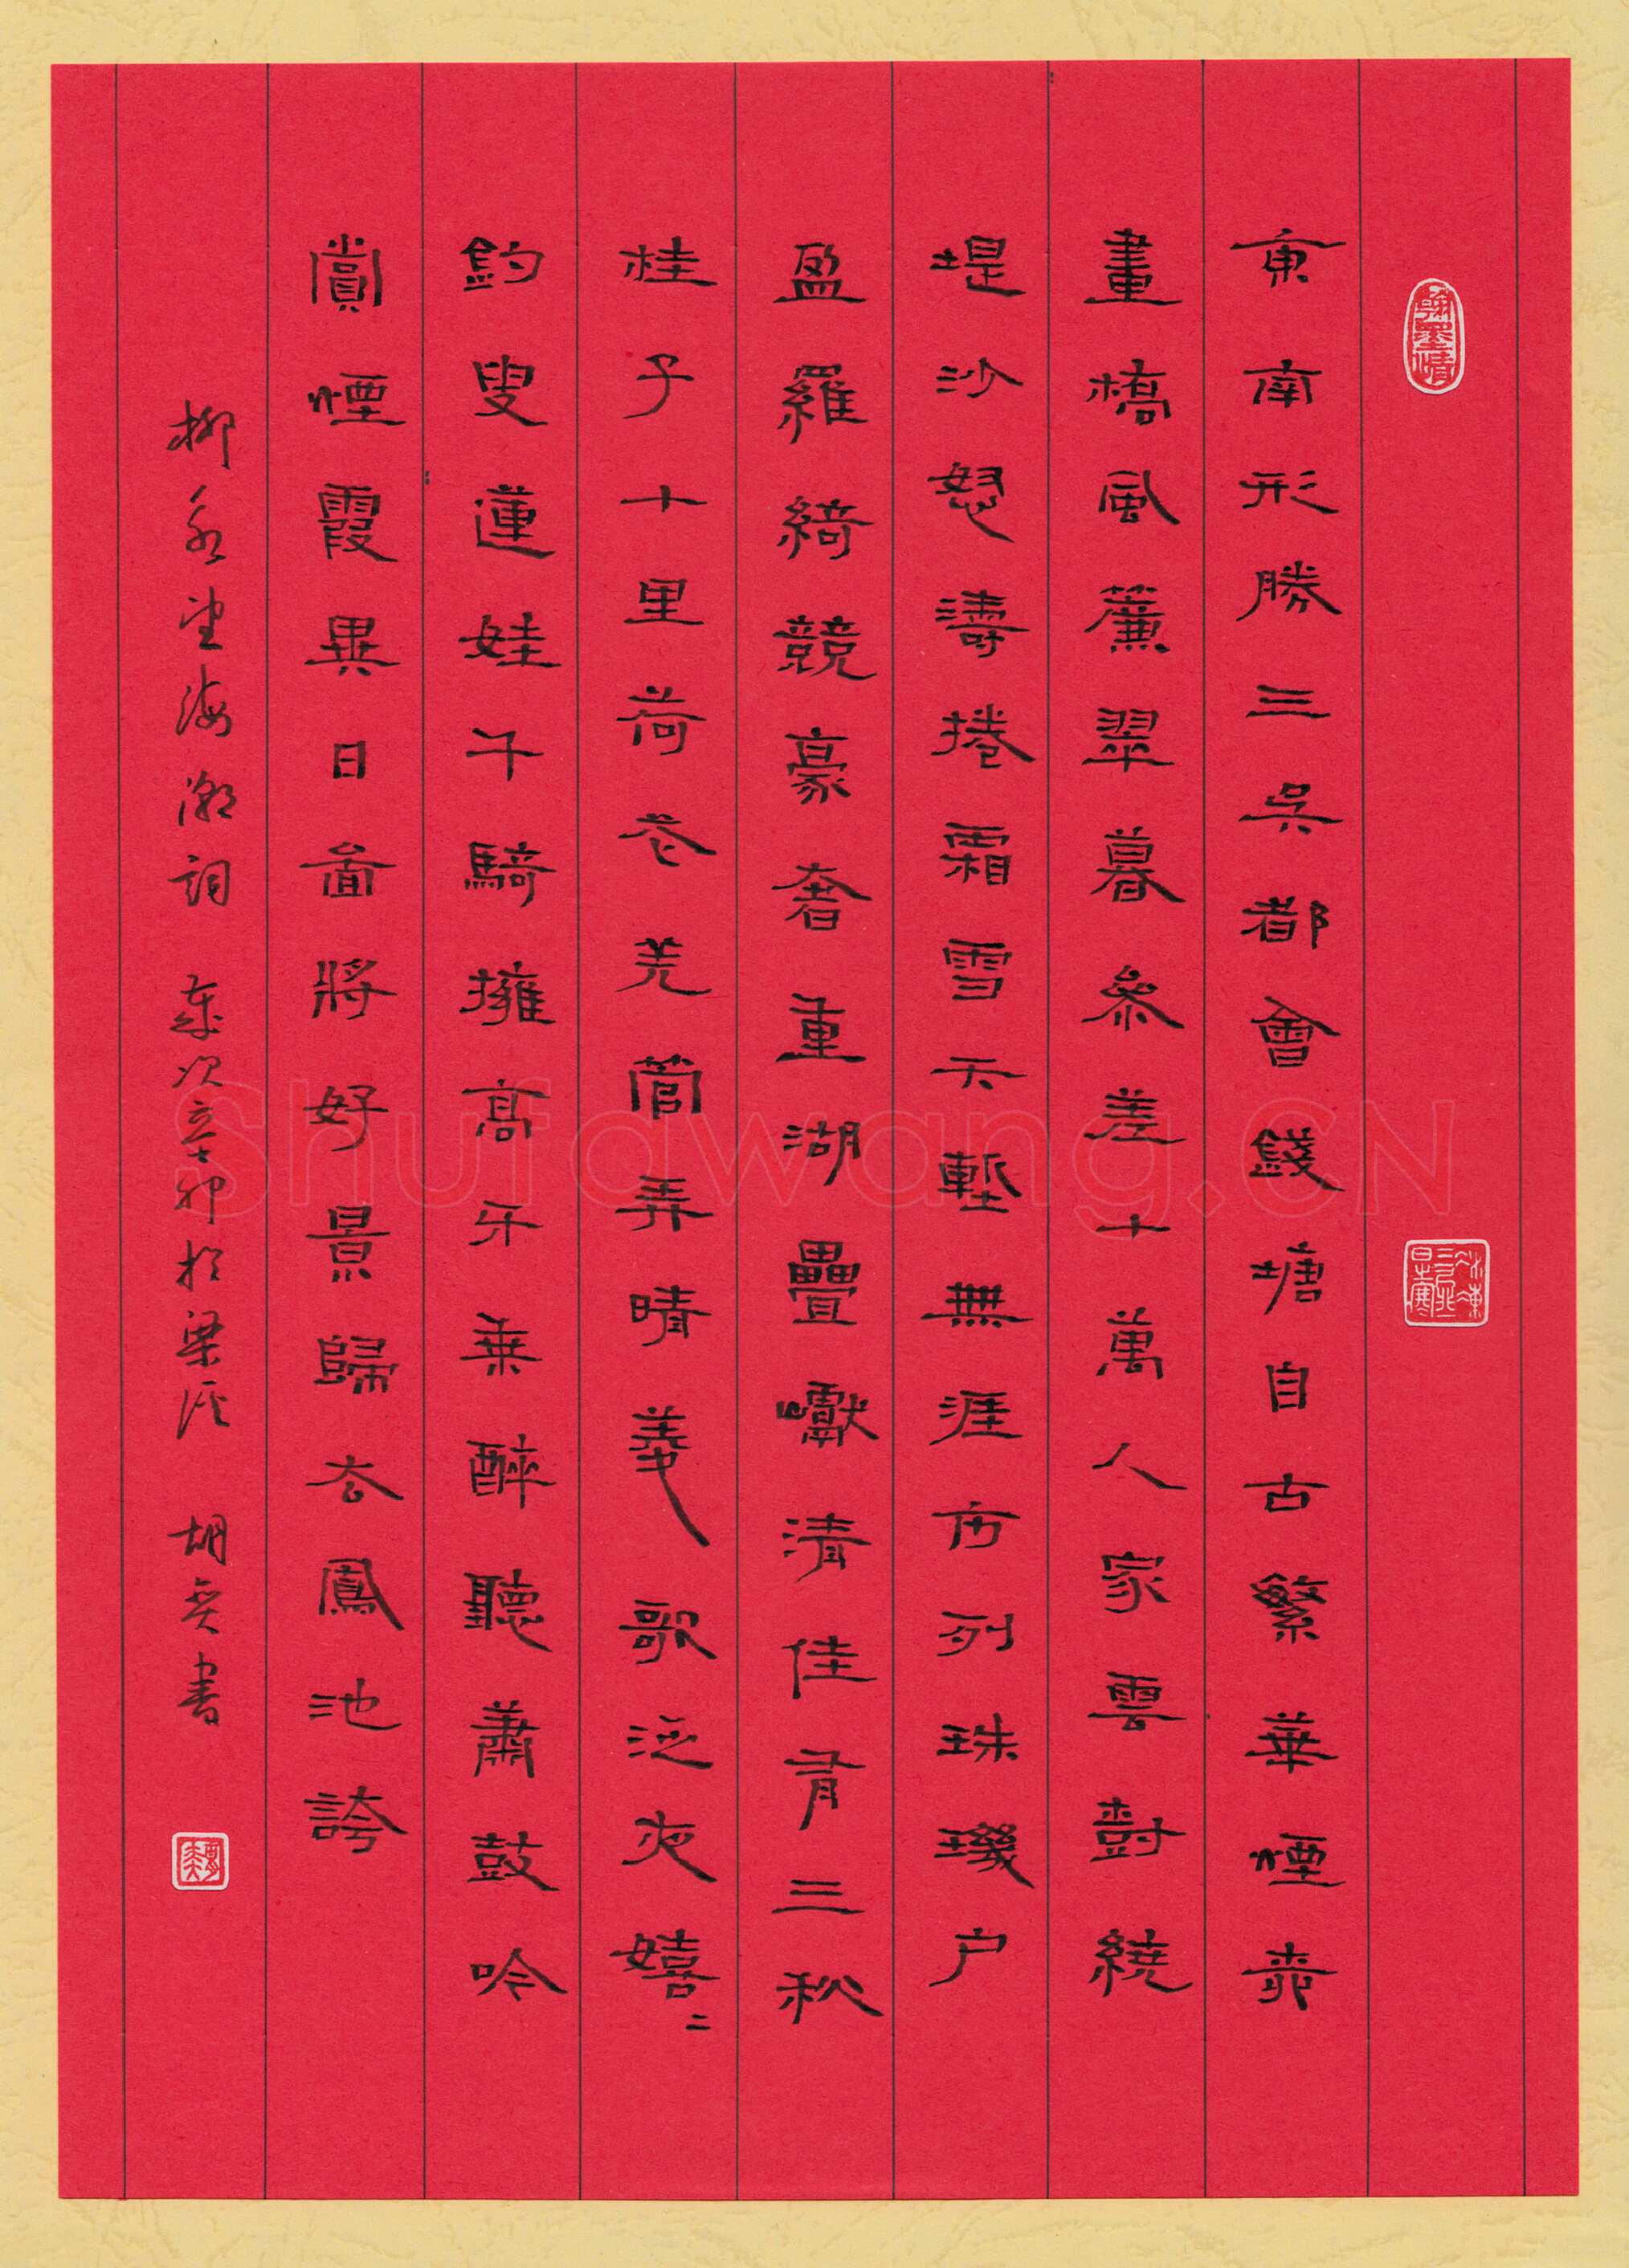 東南形勝三吳都會錢塘自古繁華煙柳
畫橋風簾翠幕參差十萬人家雲樹繞
堤沙怒濤捲霜雪天塹無涯市列珠璣户
盈羅綺競豪奢重湖疊巘清佳有三秋
桂子十里荷花羌管弄晴菱歌泛夜嬉二
釣叟蓮娃千騎擁高牙乘醉聽蕭鼓吟
賞煙霞異日圖將好景歸去鳳池誇
柳永望海潮詞 歲次辛卯於梁溪 胡奕書
翰墨情
Shufawang.CN